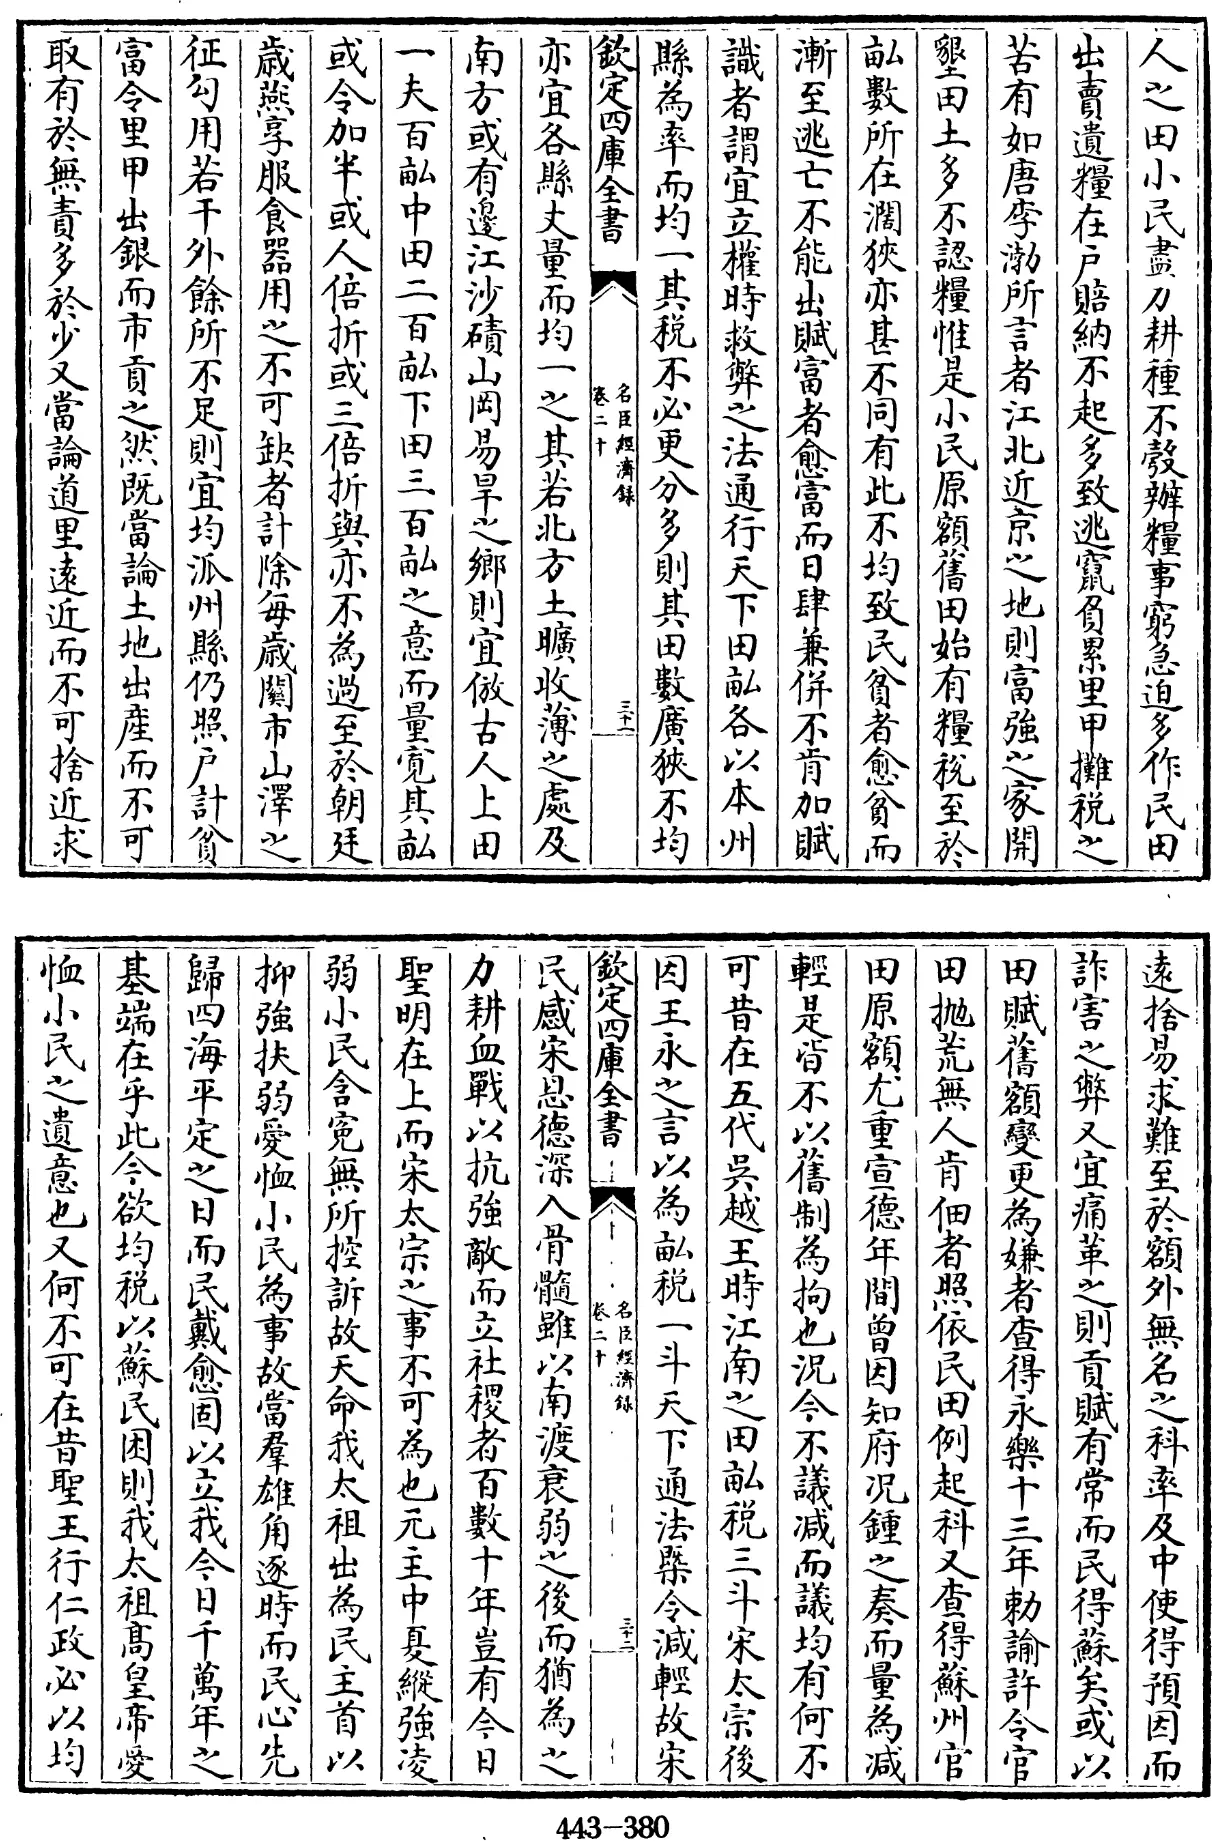 人之田小民盡力耕種不彀辦糧事窮急迫多作民田
出賣遺糧在戸賠納不起多致逃竄負累里甲攤税之
苦有如唐李渤所言者江北近京之地則富強之家開
墾田土多不認糧惟是小民原額舊田始有糧税至於
畝數所在濶狹亦甚不同有此不均致民貧者愈貧而
漸至逃亡不能出賦富者愈富而日肆兼併不肯加賦
識者謂宜立權時救弊之法通行天下田畝各以本州
縣為率而均一其税不必更分多則其田數廣狹不均
欽定四庫全書
名臣經濟録
卷二十
三十一
亦宜各縣丈量而均一之其若北方土曠收薄之處及
南方或有邊江沙磧山岡易旱之鄉則宜倣古人上田
一夫百畝中田二百畝下田三百畝之意而量寛其畝
或令加半或人倍折或三倍折與亦不為過至於朝廷
歲燕享服食器用之不可缺者計除每歲關市山澤之
征勾用若干外餘所不足則宜均派州縣仍照户計貧
富令里甲出銀而市貢之然既當論土地出産而不可
取有於無責多於少又當論道里逺近而不可捨近求
逺捨易求難至於額外無名之科率及中使得預因而
詐害之弊又宜痛革之則貢賦有常而民得蘇矣或以
田賦舊額變更為嫌者查得永樂十三年勅諭許令官
田抛荒無人肯佃者照依民田例起科又查得蘇州官
田原額尤重宣德年間曾因知府况鍾之奏而量為減
輕是皆不以舊制為拘也况今不議減而議均有何不
可昔在五代吳越王時江南之田畝税三斗宋太宗後
因王永之言以為畝税一斗天下通法槩令減輕故宋
欽定四庫全書
名臣經濟録
卷二十
三十二
民感宋恩德深入骨髓雖以南渡衰弱之後而猶為之
力耕血戰以抗強敵而立社稷者百數十年豈有今日
聖明在上而宋太宗之事不可為也元主中夏縱強凌
弱小民含寃無所控訴故天命我太祖出為民主首以
抑強扶弱愛恤小民為事故當羣雄角逐時而民心先
歸四海平定之日而民戴愈固以立我今日千萬年之
基端在乎此今欲均税以蘇民困則我太祖髙皇帝愛
恤小民之遺意也又何不可在昔聖王行仁政必以均
443-380